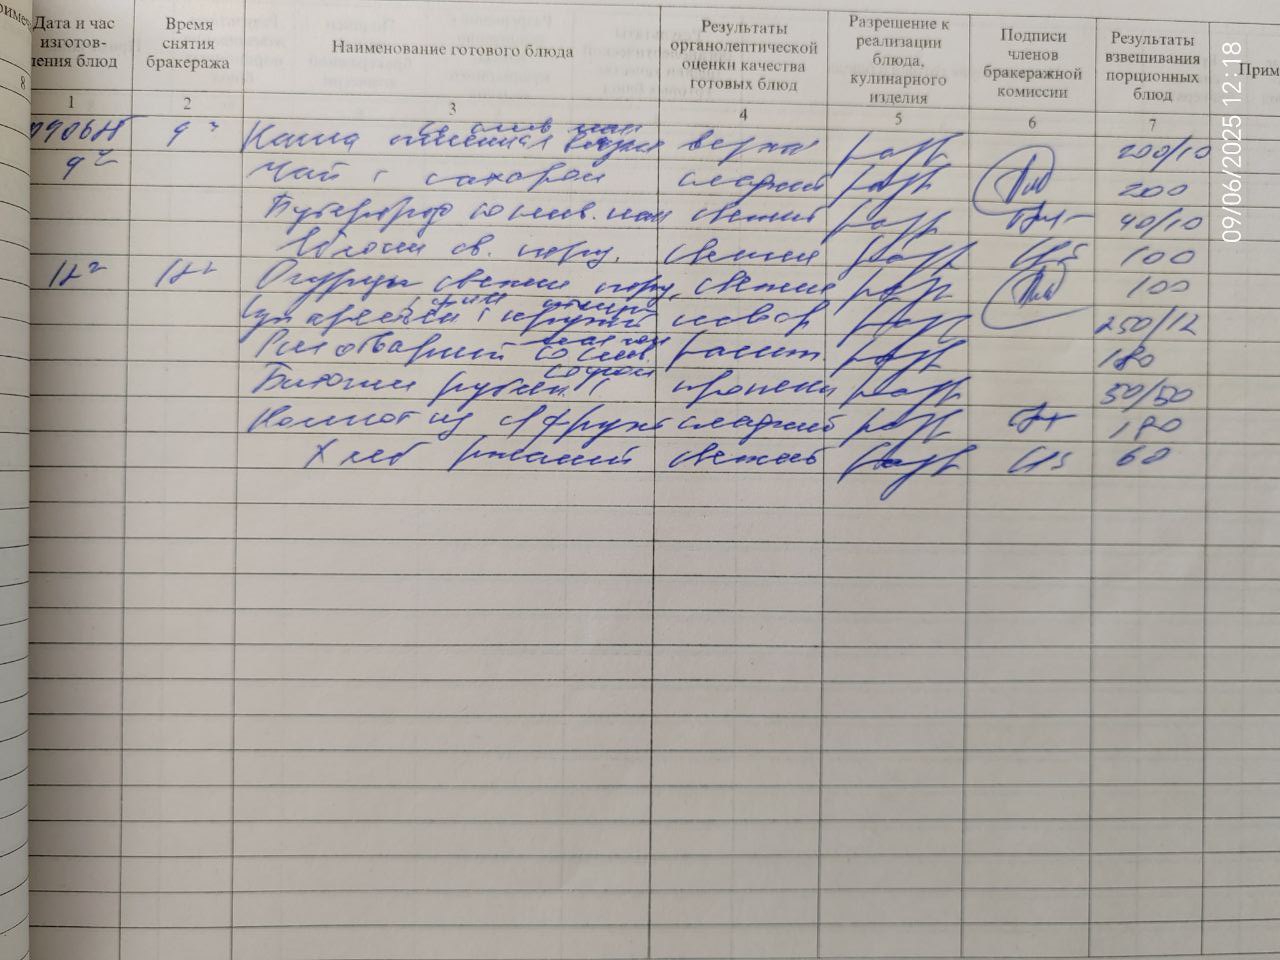 Дата и час
изготов-
ления блюд
Время
снятия
бракеража
Наименование готового блюда
Результаты
органолептической
оценки качества
готовых блюд
Разрешение к
реализации
блюда,
кулинарного
изделия
Подписи
членов
бракеражной
комиссии
Результаты
взвешивания
порционных
блюд
Прим
1 2 3 4 5 6 7
8
со слив мас
Каша разр 200/10
Чай с сахаром сладкий разр 200
Бутерброд со слив. мас свежий разр 40/10
Яблоки св. порц. свежие разр 100
Огурцы свежие порц. свежие разр 100
разр 250/12
Рис отварной со слив. маслом рассып. разр 180
соусом
Биточки рублен. с разр 50/50
Компот из с/фрукт сладкий разр 180
Хлеб ржаной свежий разр 60
09/06/2025 12:18